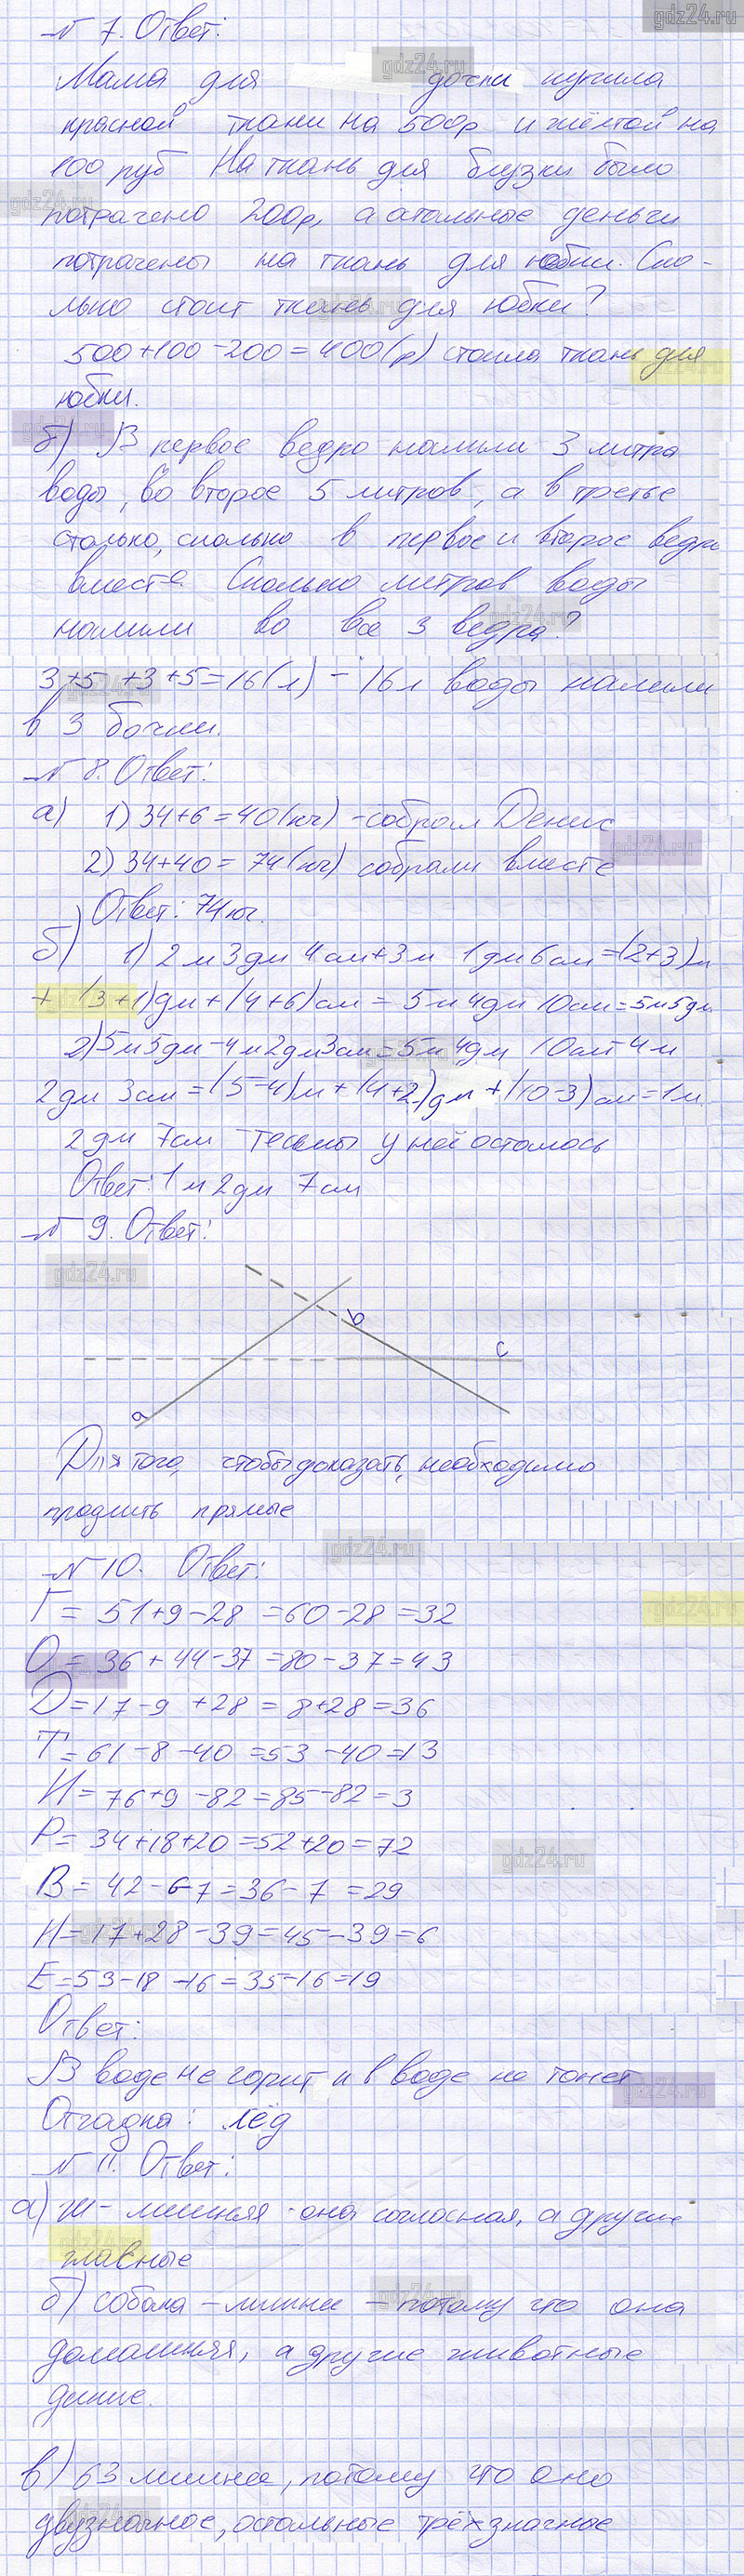 gdz24.ru
№ 7. Ответ:
gdz24.ru
Мама для дочки купила
красной ткани на 500р и жёлтой на
100 руб На ткань для блузки было
gdz24.ru
потрачено 200р, а отальные деньги
потрачены на ткань для юбки. Ско-
лько стоит ткань для юбки?
gdz24.ru
500+100-200=400(р) стоила ткань для
gdz24.ru
юбки.
gdz24.ru
б) В первое ведро налили 3 литра
воды, во второе 5 литров, а в третье
столько, сколько в первое и второе ведро
вместе Сколько литров воды
gdz24.ru
налили во все 3 ведра?
3+5+3+5=16(л) - 16л воды налили
gdz24.ru
в 3 бочки.
№ 8. Ответ:
а) 1) 34+6=40(кг) -собрал Денис
gdz24.ru
2) 34+40=74(кг) собрали вместе
Ответ: 74кг.
б) 1) 2м 3дм 4см+3м 1дм6см=(2+3)м
+ (3+1)дм+(4+6)см = 5м 4дм 10см=5м5дм
gdz24.ru
2)5м5дм-4м2дм3см=5м 4дм 10см-4м
gdz24.ru
2дм 3см=(5-4)м+(4+2)дм+(10-3)см=1м
2дм 7см -тесьмы у неё осталось
Ответ: 1м 2дм 7см
№ 9. Ответ:
gdz24.ru
b
c
a
Для того, чтобы доказать, необходимо
продлить прямые
gdz24.ru
№ 10. Ответ:
Г= 51+9-28=60-28=32
gdz24.ru
О= 36+44-37=80-37=43
gdz24.ru
Д=17-9+28=8+28=36
Т=61-8-40=53-40=13
И=76+9-82=85-82=3
Р=34+18+20=52+20=72
gdz24.ru
В=42-6-7=36-7=29
Н=17+28-39=45-39=6
gdz24.ru
Е=53-18-16=35-16=19
Ответ:
В воде не горит и в воде не тонет
gdz24.ru
Отгадка: лёд
№ 11. Ответ:
а) Ш- лишняя -она согласная, а другие
gdz24.ru
главные
б) собака -лишнее - потому что она
gdz24.ru
домашняя, а другие животные
дикие.
в) 63 лишнее, потому что оно
gdz24.ru
двузначное, остальные трёхзначное